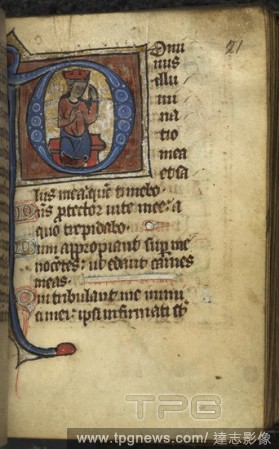 D omi
nus
illu
mi
na
tio
mea
et sa
lus mea: que͂ timebo.
Dn͂s ꝓtector vite mee: a
quo trepidabo.
Dum appropiant sup me
nocentes: ut edant carnes
meas.
Qui tribulant me inimi
ci mei: ipsi infirmati st͂
21
TPG
www.tpgnews.com/ 達志影像